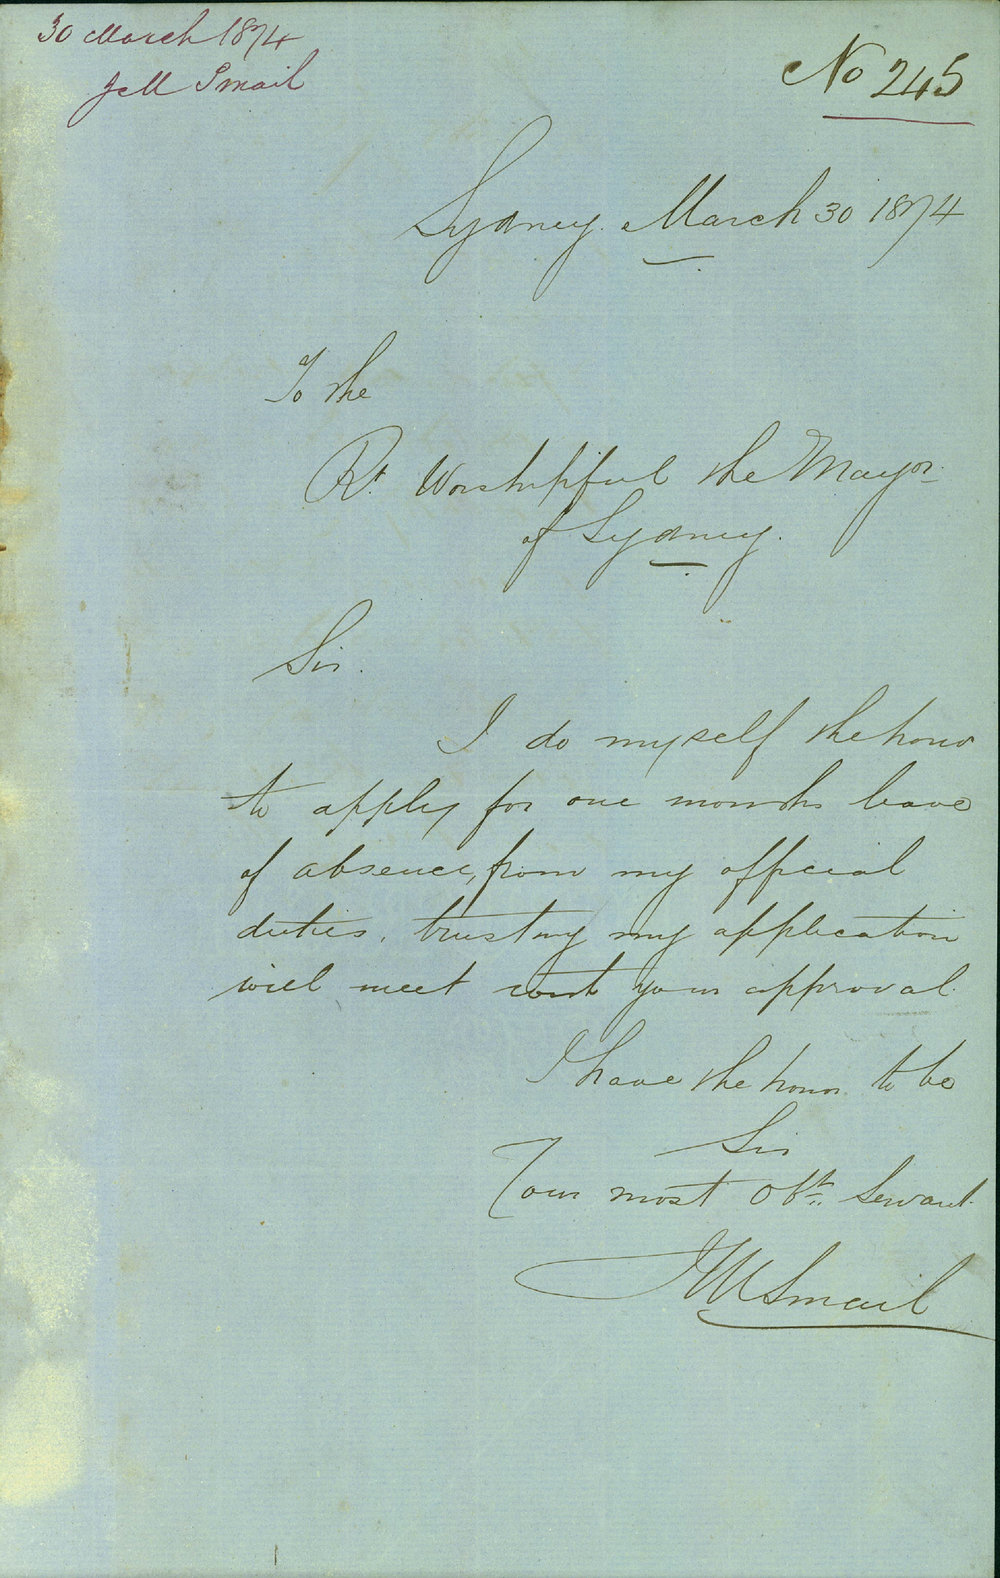 30 March 1874
J M Smail
No 245
Sydney. March 30 1874
To the
Rt. Worshipful the Mayor
of Sydney.
Sir.
I do myself the honor
to apply for one months leave
of absence, from my official
duties, trusting my application
will meet with your approval.
I have the honor to be
Sir
Your most Obt. Servant.
J M Smail